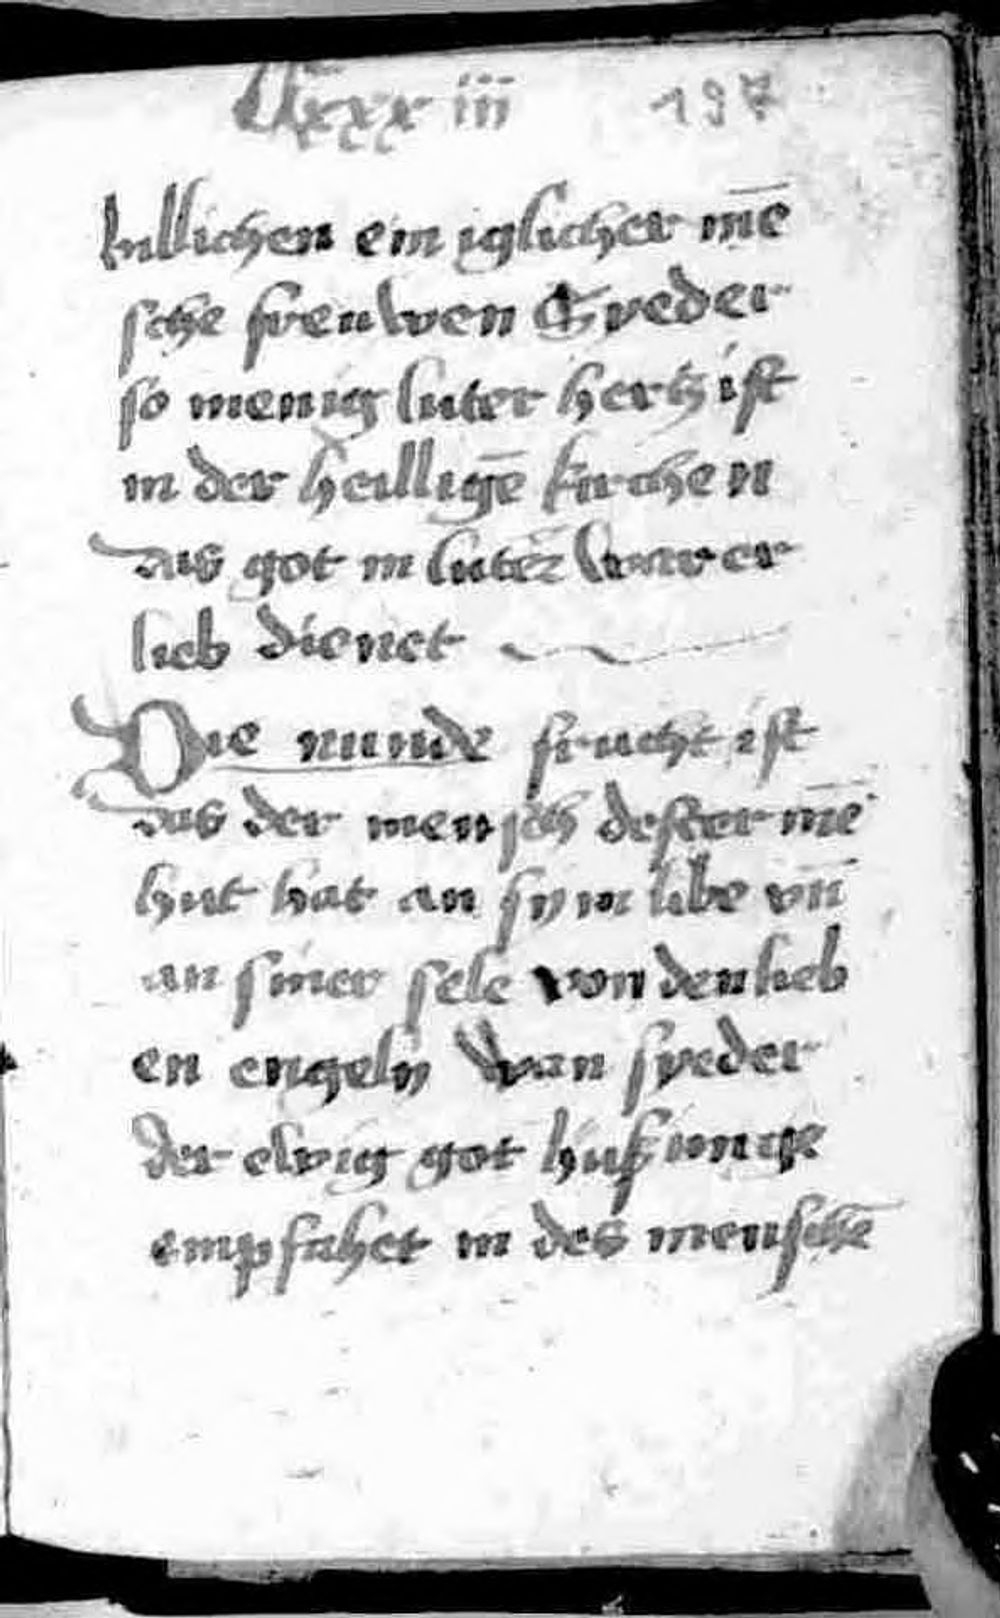 Cxxxiii 197
billichen ein iglicher mē
sche freuwen Syeder
so menig luter hertz ist
in der heilligē kirchen
das got in luter warer
lieb dienet
Die nunde frucht ist
das der mensch dester mē
hut hat an sym libe vn̄
an siner sele von den lieb
en engeln wan syeder
der ewig got husunge
empfahet in des menschē